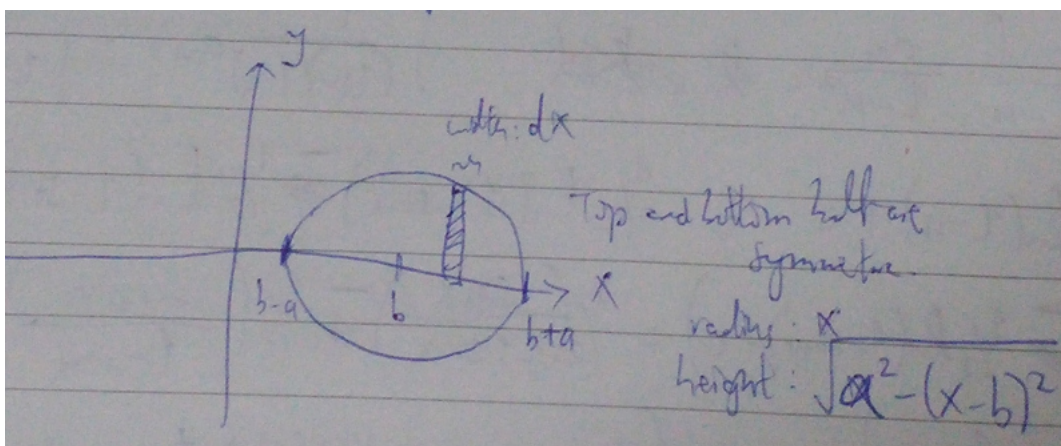 y
width: dx
Top and bottom half are
symmetric.
b-a
b
b+a
x
radius: x
height: √(a²-(x-b)²)